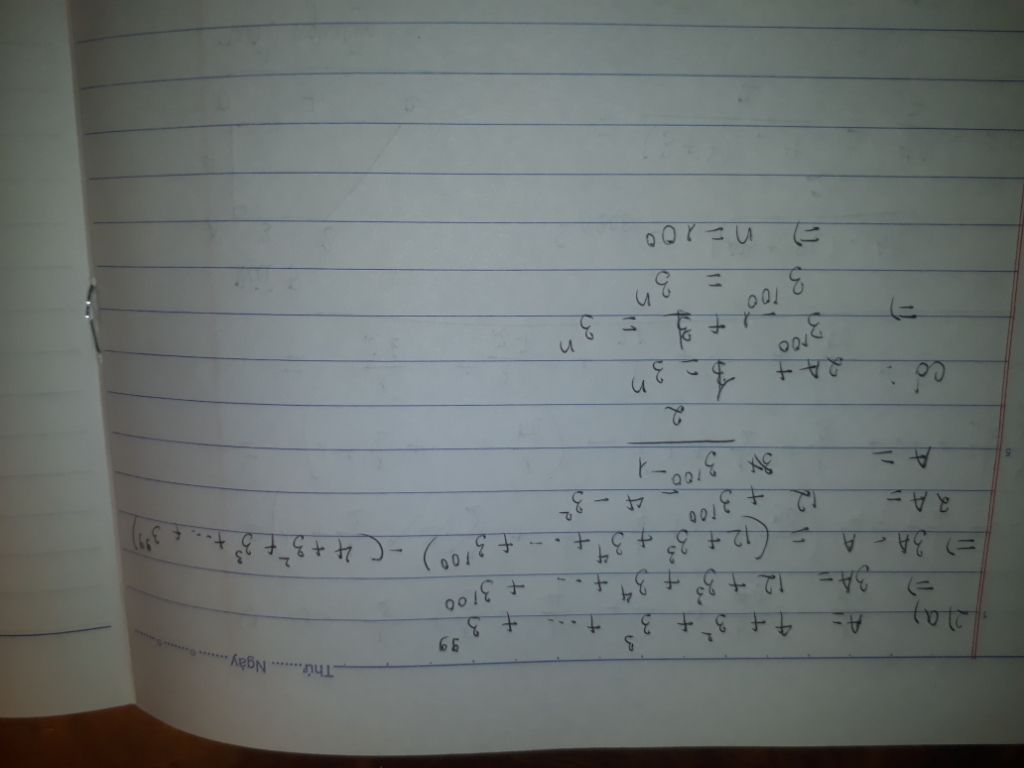 Thứ........ Ngày........
2) a) A = 4 + 3² + 3³ + ... + 3⁹⁹
=) 3A = 12 + 3³ + 3⁴ + ... + 3¹⁰⁰
=) 3A - A = (12 + 3³ + 3⁴ + ... + 3¹⁰⁰) - (4 + 3² + 3³ + ... + 3⁹⁹)
2A = 12 + 3¹⁰⁰ - 4 - 3²
A = 3¹⁰⁰ - 1
2
Có: 2A + 1 = 3ⁿ
3¹⁰⁰ - 1 + 1 = 3ⁿ
=) 3¹⁰⁰ = 3ⁿ
=) n = 100